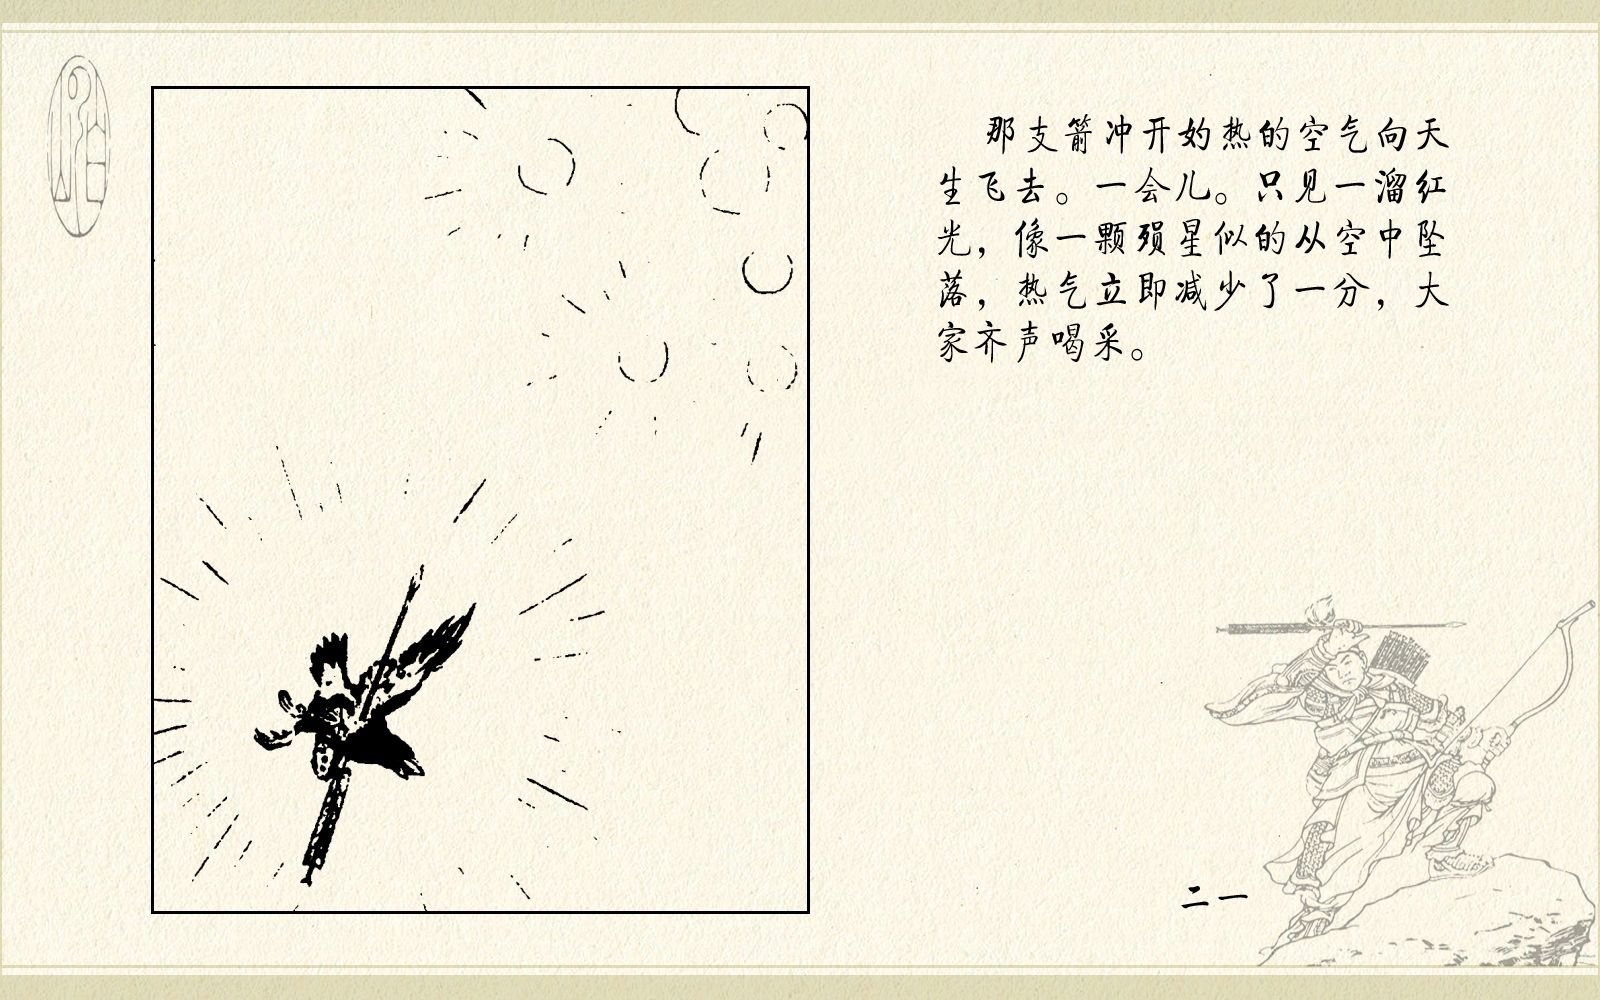 那支箭冲开妁热的空气向天
生飞去。一会儿。只见一溜红
光，像一颗殒星似的从空中坠
落，热气立即减少了一分，大
家齐声喝采。
二一